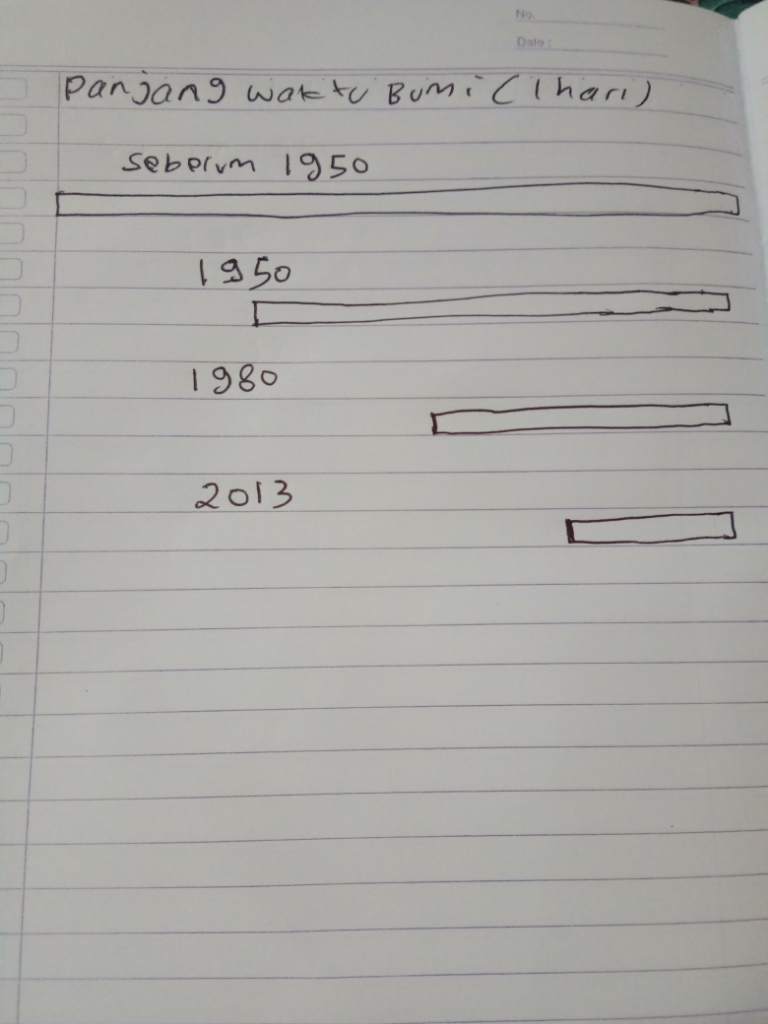 No.
Date :
Panjang waktu Bumi (1 hari)
sebelum 1950
1950
1980
2013